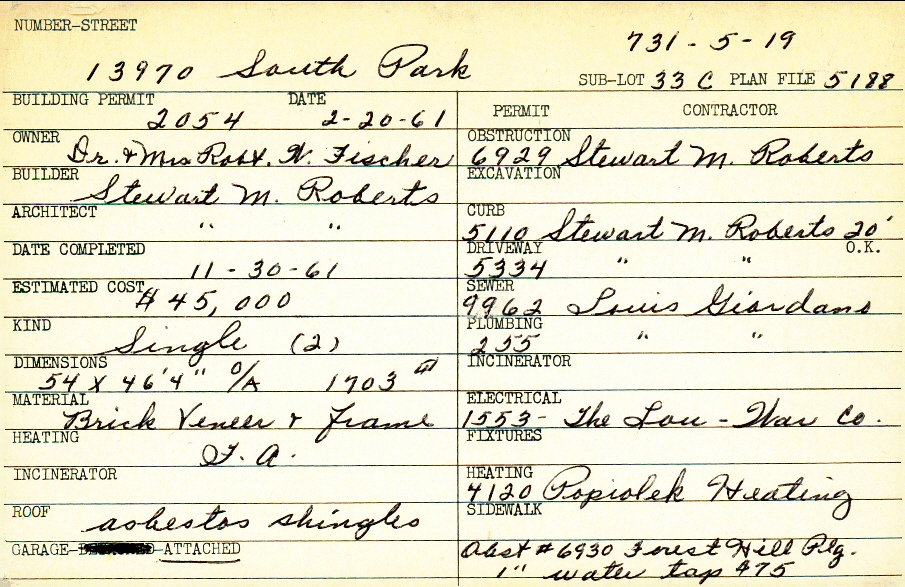 NUMBER-STREET
731-5-19
13970 South Park
SUB-LOT 33 C PLAN FILE 5188
BUILDING PERMIT DATE
2054 2-20-61
PERMIT CONTRACTOR
OWNER
Dr. & Mrs Robt. W. Fischer
OBSTRUCTION
6929 Stewart M. Roberts
BUILDER
Stewart M. Roberts
EXCAVATION
ARCHITECT
" "
CURB
5110 Stewart M. Roberts 20'
DATE COMPLETED
11-30-61
DRIVEWAY O.K.
5334 " "
ESTIMATED COST
$45,000
SEWER
9962 Louis Giordano
KIND
Single (2)
PLUMBING
255 " "
DIMENSIONS
54 X 46'4" O/A 1703
INCINERATOR
MATERIAL
Brick Veneer & frame
ELECTRICAL
1553- The Lou-War Co.
HEATING
F. A.
FIXTURES
INCINERATOR
HEATING
4120 Popiolek Heating
ROOF
asbestos shingles
SIDEWALK
GARAGE- -ATTACHED
Abst #6930 Forest Hill Plg.
1" water tap $75